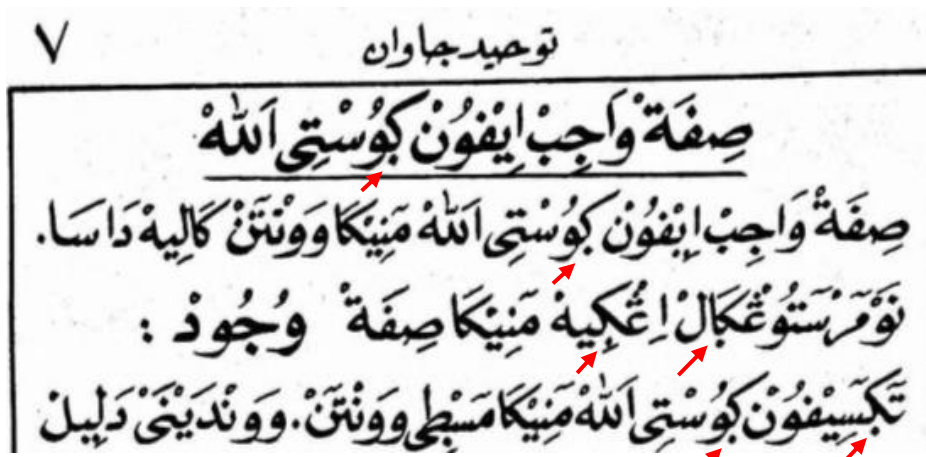 توحيد جاوان ٧
صِفَةْ وَاجِبْ اِيْفُوْنْ ࢴُوْسْتِي اَللهْ
صِفَةْ وَاجِبْ اِيْفُوْنْ ࢴُوْسْتِي اَللهْ مَنِيْكَا وَوَنْتَنْ كَالِيهْ دَاسَا.
نَوْمَرْ سَتُوْڠْࢴَالْ اِڠْࢴِيهْ مَنِيْكَا صِفَةْ وُجُودْ :
تَࢴْسِيْفُوْنْ ࢴُوْسْتِي اَللهْ مَنِيْكَا مَسْطِي وَوَنْتَنْ. وَوَنْدَيْنَيْ دَلِيلْ